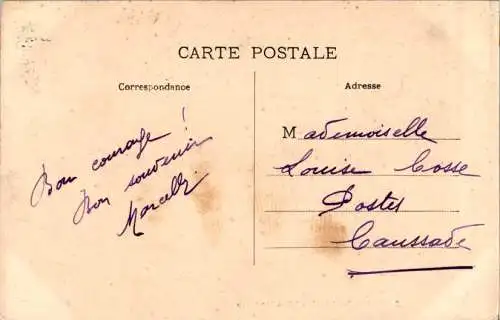 CARTE POSTALE
Correspondance
Bon courage !
Bon souvenir
Marcelle
Adresse
Mademoiselle
Louise Cosse
Postes
Caussade